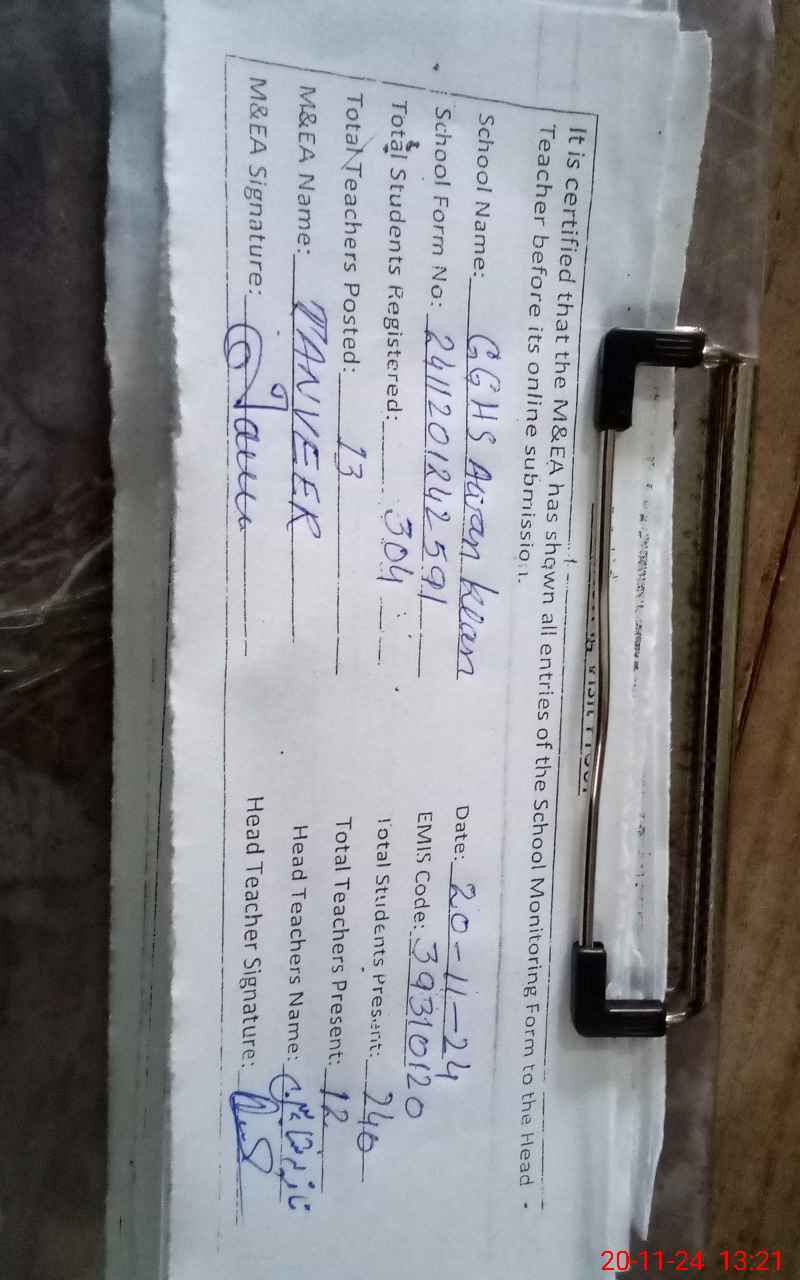 It is certified that the M&EA has shown all entries of the School Monitoring Form to the Head
Teacher before its online submission.
School Name: GGHS Awan Klan Date: 20-11-24
School Form No: 2411201242591 EMIS Code: 39310120
Total Students Registered: 304 Total Students Present: 240
Total Teachers Posted: 13 Total Teachers Present: 12
M&EA Name: TANVEER Head Teachers Name:
M&EA Signature: Head Teacher Signature:
20-11-24 13:21